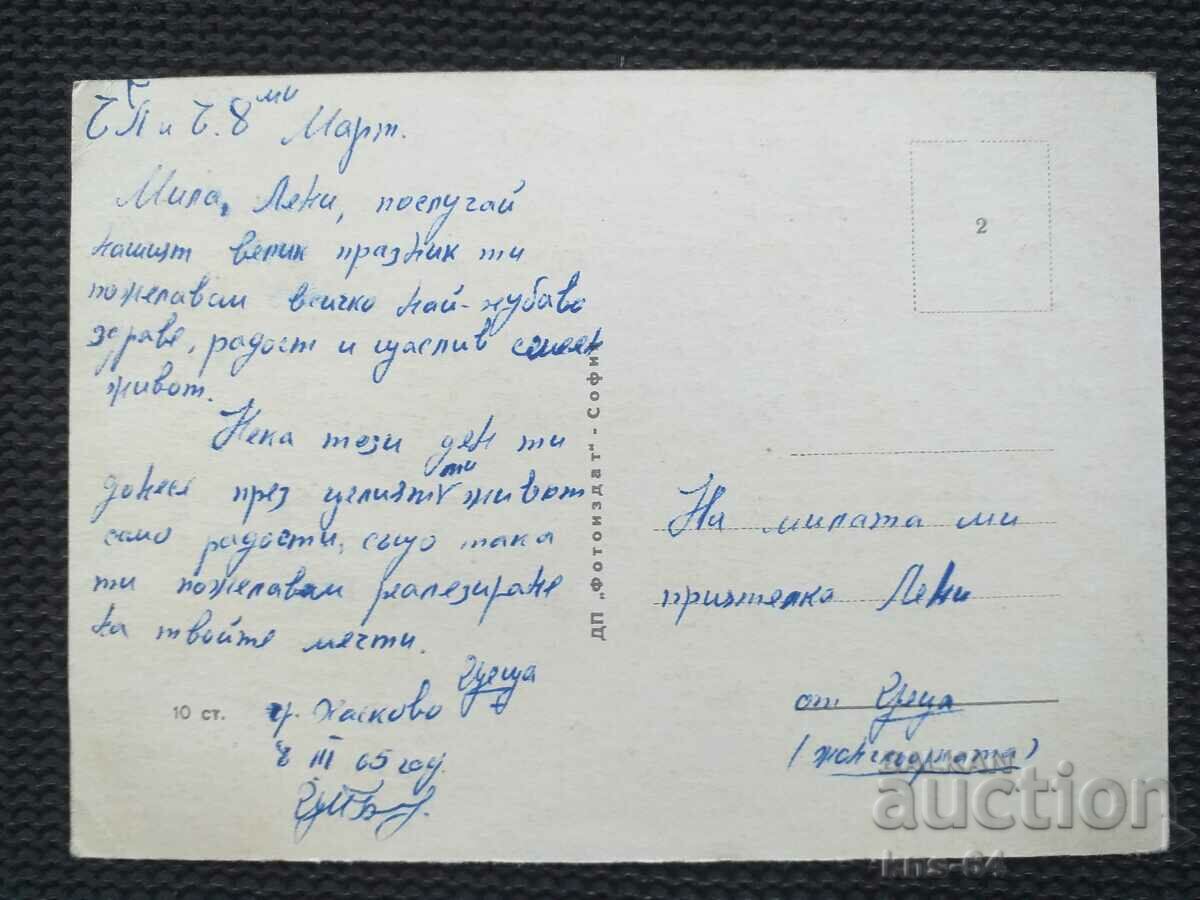 ЧП и Ч. 8ми Март.
Мила, Лени, послучай
нашият велик празник ти
пожелавам всичко най-хубаво
здраве, радост и щаслив семеен
живот.
Нека този ден ти
донесе през целият ти живот
само радости, също така
ти пожелавам реалезиране
на твойте мечти.
гр. Хасково
8 III 65 год.
10 ст.
ДП „Фотоиздат" - София
2
На милата ми
приятелка Лени
от
BALKAN
auction
kns-64